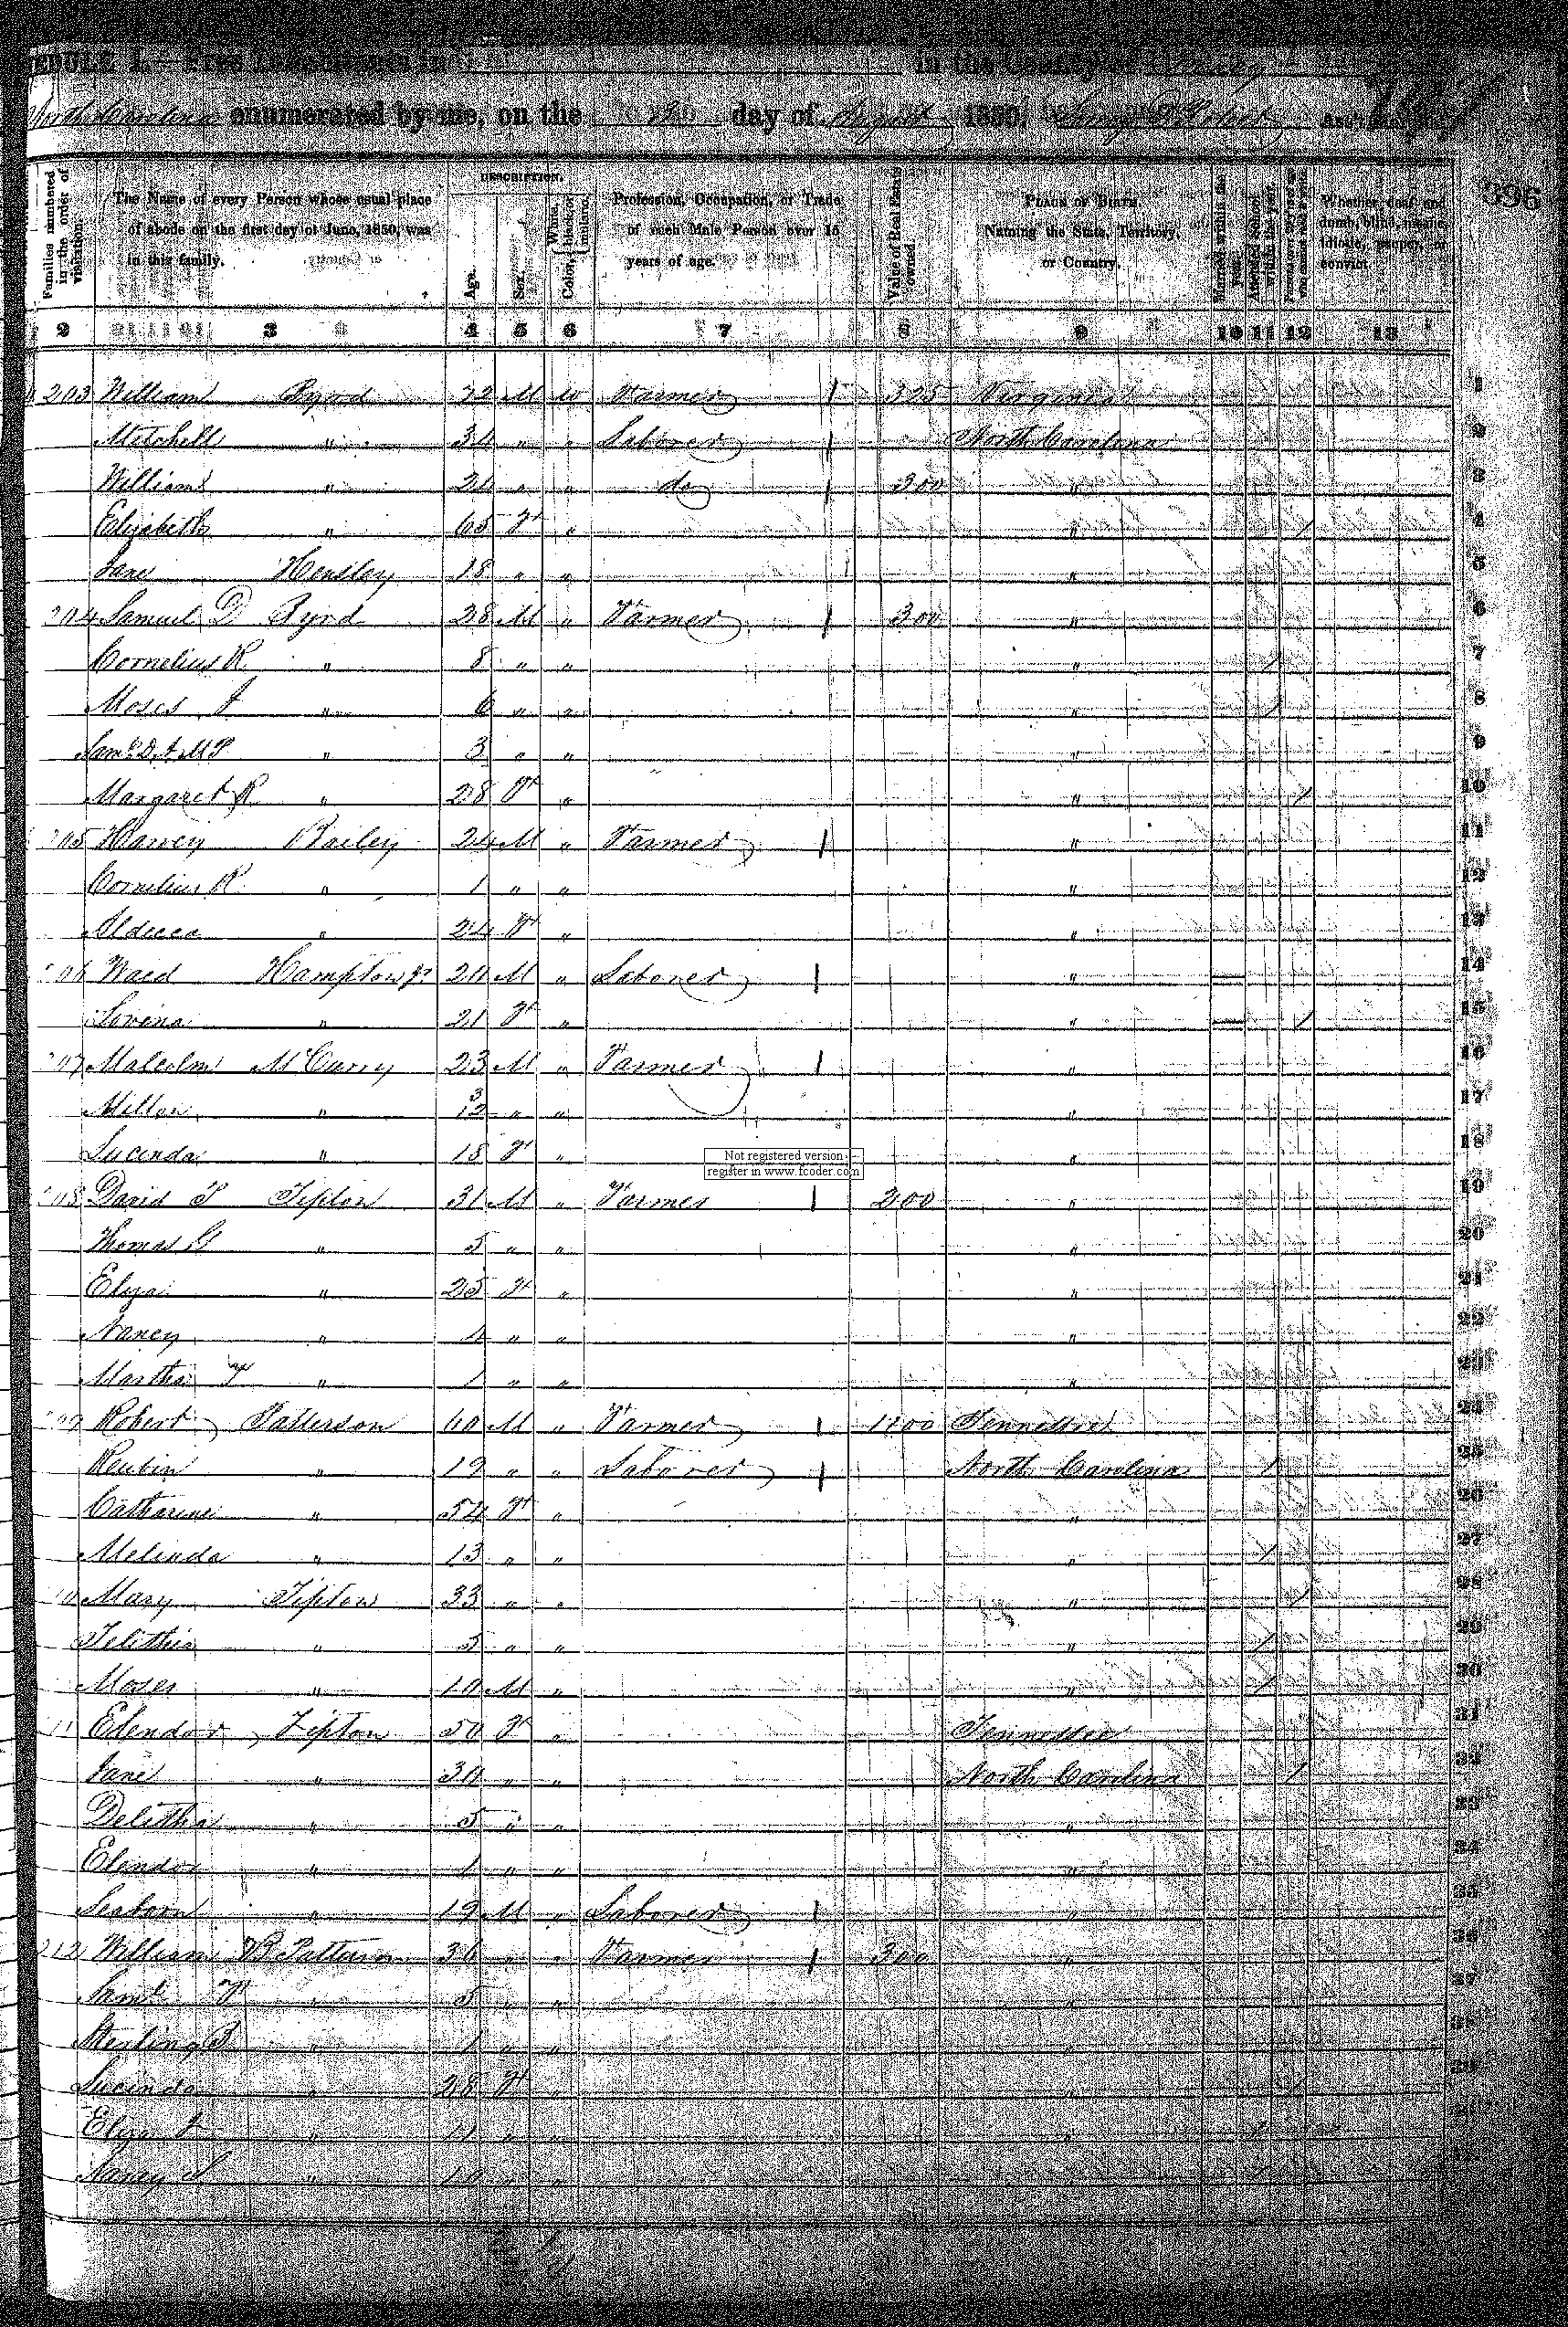 EDULE I.—Free Inhabitants in in the County of Yancey
North Carolina enumerated by me, on the day of August 1850.
396
Families numbered in the order of visitation.
The Name of every Person whose usual place of abode on the first day of June, 1850, was in this family.
DESCRIPTION.
Age.
Sex.
Color, White, black, or mulatto.
Profession, Occupation, or Trade of each Male Person over 15 years of age.
Value of Real Estate owned.
PLACE OF BIRTH. Naming the State, Territory, or Country.
Married within the year.
Attended School within the year.
Whether deaf and dumb, blind, insane, idiotic, pauper, or convict.
2 3 4 5 6 7 8 9 10 11 12 13
203 William Byrd 72 M W Farmer 325 Virginia 1
Mitchell " 34 " " Laborer North Carolina 2
William " 24 " " do 300 " 3
Elizabeth " 65 F " " / 4
Jane Hensley 18 " " " 5
204 Samuel D Byrd 28 M " Farmer 300 " 6
Cornelius R " 8 " " " / 7
Moses J " 6 " " " / 8
Saml D. A. M P " 3 " " " 9
Margaret R " 28 F " " / 10
205 Harvey Bailey 24 M " Farmer " 11
Cornelius R " 1 " " " 12
" 24 F " " 13
206 Hampton Jr 20 M " Laborer " 14
Lovina " 21 F " " / 15
207 Malcolm McCurry 23 M " Farmer " 16
Milton " 3/12 " " " 17
Lucinda " 18 F " " 18
Not registered version
register in www.fcoder.com
208 David Tipton 31 M " Farmer 200 " 19
Thomas G " 5 " " " 20
Eliza " 25 F " " 21
Nancy " 4 " " " 22
Martha " 1 " " " 23
209 Robert Patterson 60 M " Farmer Tennessee 24
Reubin " 19 " " Laborer North Carolina / 25
Catharine " 54 F " " 26
Melinda " 13 " " " / 27
Mary Tipton 33 " " " / 28
Telitha " 5 " " " / 29
Moses " 10 M " " / 30
11 Elendor Tipton 50 F " Tennessee 31
Jane " 30 " " North Carolina / 32
Delitha " 5 " " " 33
Elendor " 1 " " " 34
Seaborn " 19 M " Laborer " 35
212 William B Patterson 36 " " Farmer 300 " 36
Saml " 5 " " " 37
Sterling B " 1 " "
Lucinda " 28 F "
Eliza " " "
Nancy " "